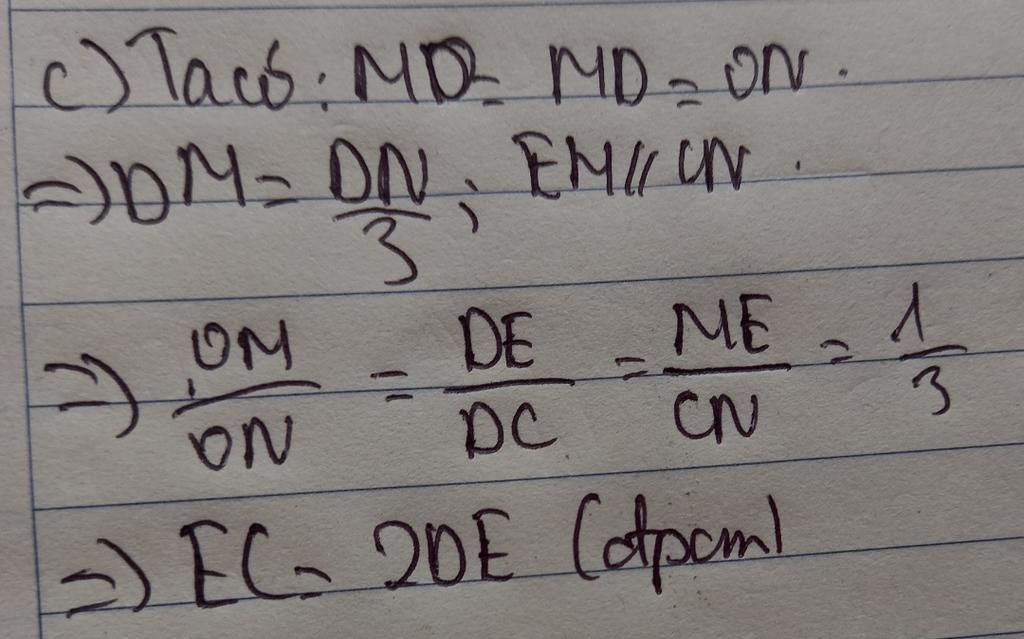 c) Ta có: MO = MD = ON.
=> DM = DN/3; EM // CN.
=> DM/DN = DE/DC = ME/CN = 1/3
=> EC = 2DE (đpcm)